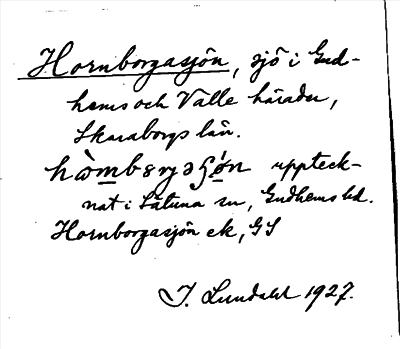 Hornborgasjön, sjö i Gud-
hems och Valle härader,
Skaraborgs län.
uppteck-
nat i Sätuna sn, Gudhems hd.
Hornborgasjön ek, GS
J. Lundahl 1927.